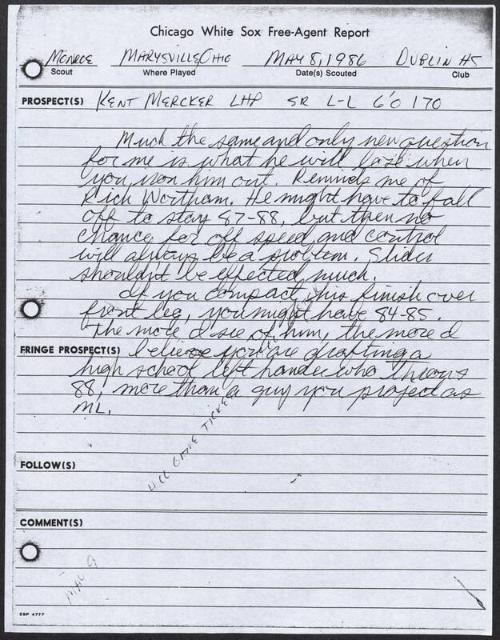 Chicago White Sox Free-Agent Report
Monroe Marysville Ohio May 8, 1986 Dublin HS
Scout Where Played Date(s) Scouted Club
PROSPECT(S) Kent Mercker LHP SR L-L 6'0 170
Much the same and only new question
for me is what he will look when
you iron him out. Reminds me of
Rich Wortham. He might have to fall
off to stay 87-88, but then no
chance for off speed and control
will always be a problem. Slider
shouldn't be expected much.
If you compact, his finish over
front leg, you might have 84-85.
The more I see of him, the more I
FRINGE PROSPECT(S) believe you are drafting a
high school left hander who throws
88, more than a guy you project as
ML.
FOLLOW(S)
COMMENT(S)
ESP 4777